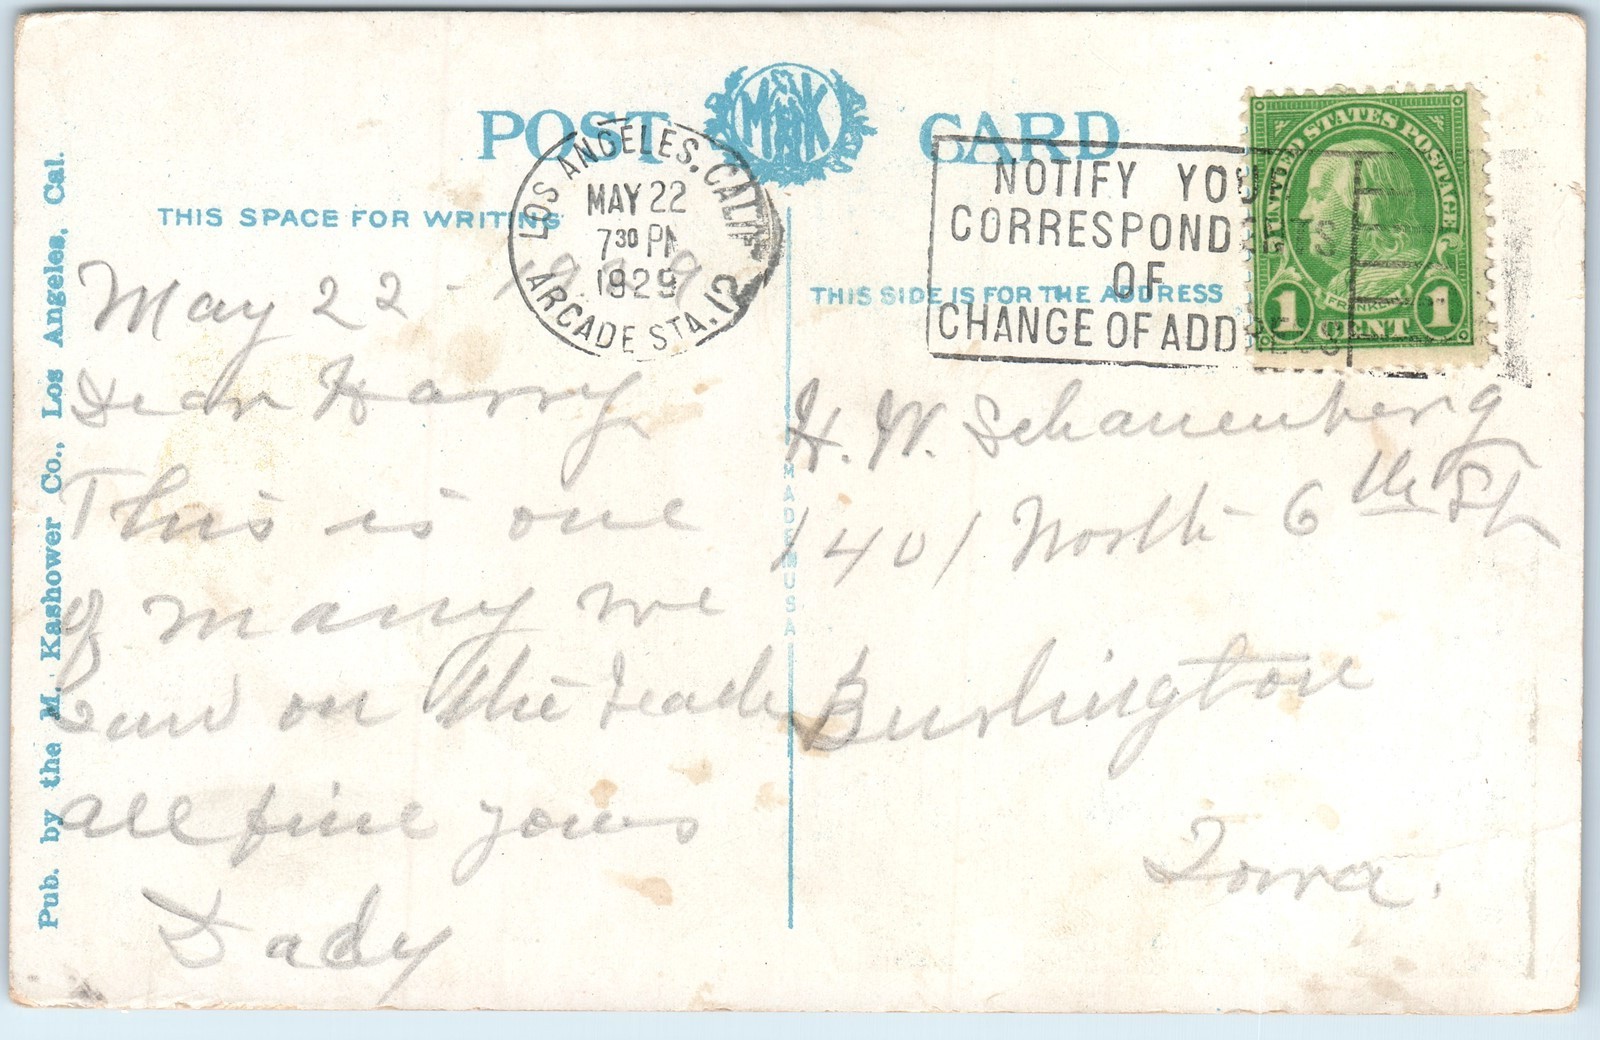 POST CARD
M K
THIS SPACE FOR WRITING
LOS ANGELES, CALIF.
MAY 22
7 30 PM
1929
ARCADE STA. 12
NOTIFY YOUR
CORRESPONDENTS
OF
CHANGE OF ADDRESS
UNITED STATES POSTAGE
FRANKLIN
1 CENT 1
THIS SIDE IS FOR THE ADDRESS
Pub. by the M. Kashower Co., Los Angeles, Cal.
MADE IN USA
May 22 - 1929
Dear Harry
This is one
of many we
on the
all fine yours
Dady
H. W. Schauenberg
1401 North 6th St
Burlington
Iowa.